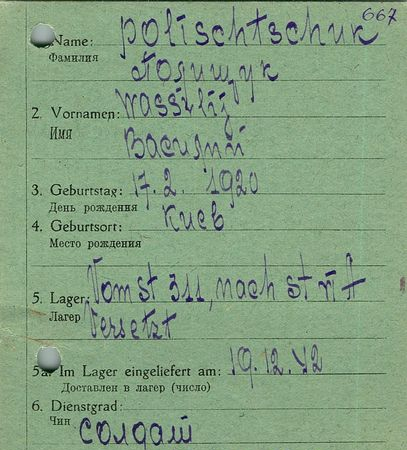 667
Name: Polischtschuk
Фамилия Полищук
2. Vornamen: Wassilij
Имя Василий
3. Geburtstag: 17. 2. 1920
День рождения
4. Geburtsort: Киев
Место рождения
5. Lager: Vom St 311, nach St VI A
Лагер Versetzt
5a. Im Lager eingeliefert am: 19.12.42
Доставлен в лагер (число)
6. Dienstgrad:
Чин солдат